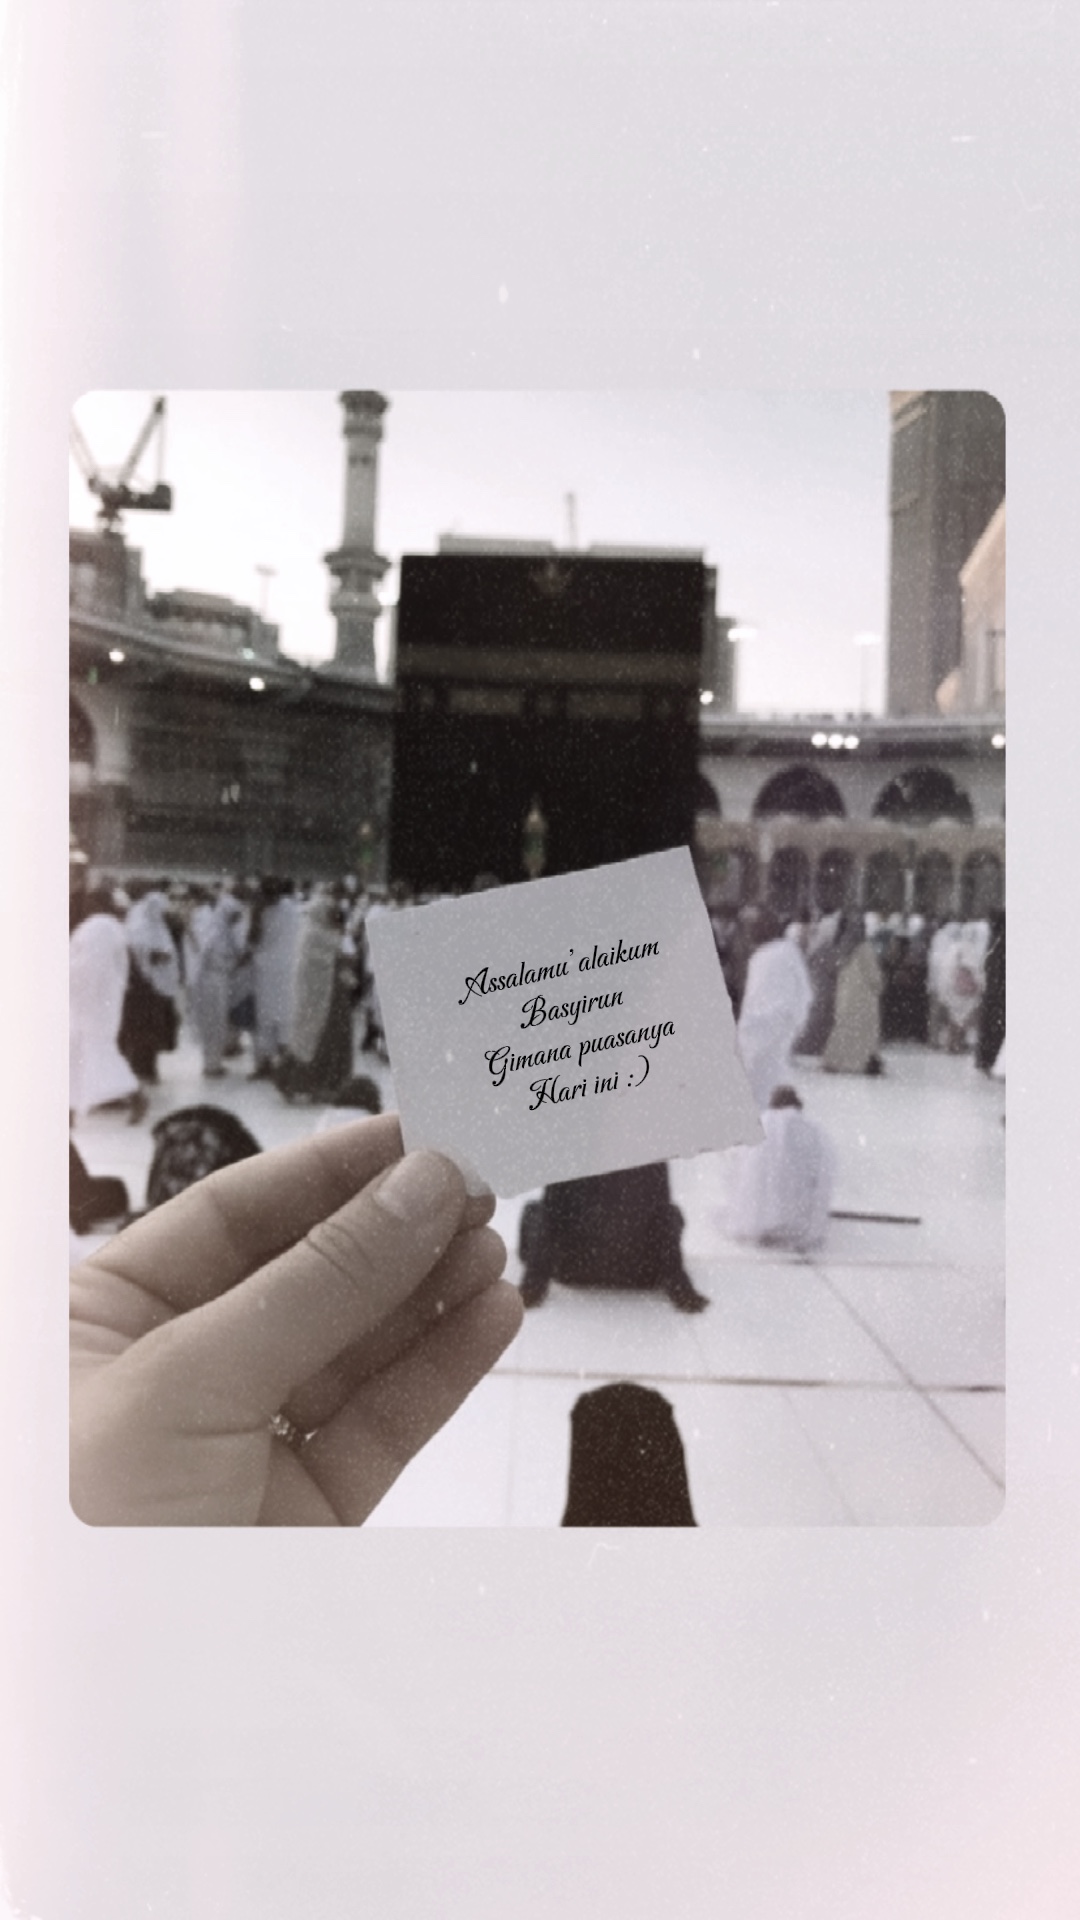 Assalamu'alaikum
Basyirun
Gimana puasanya
Hari ini :)